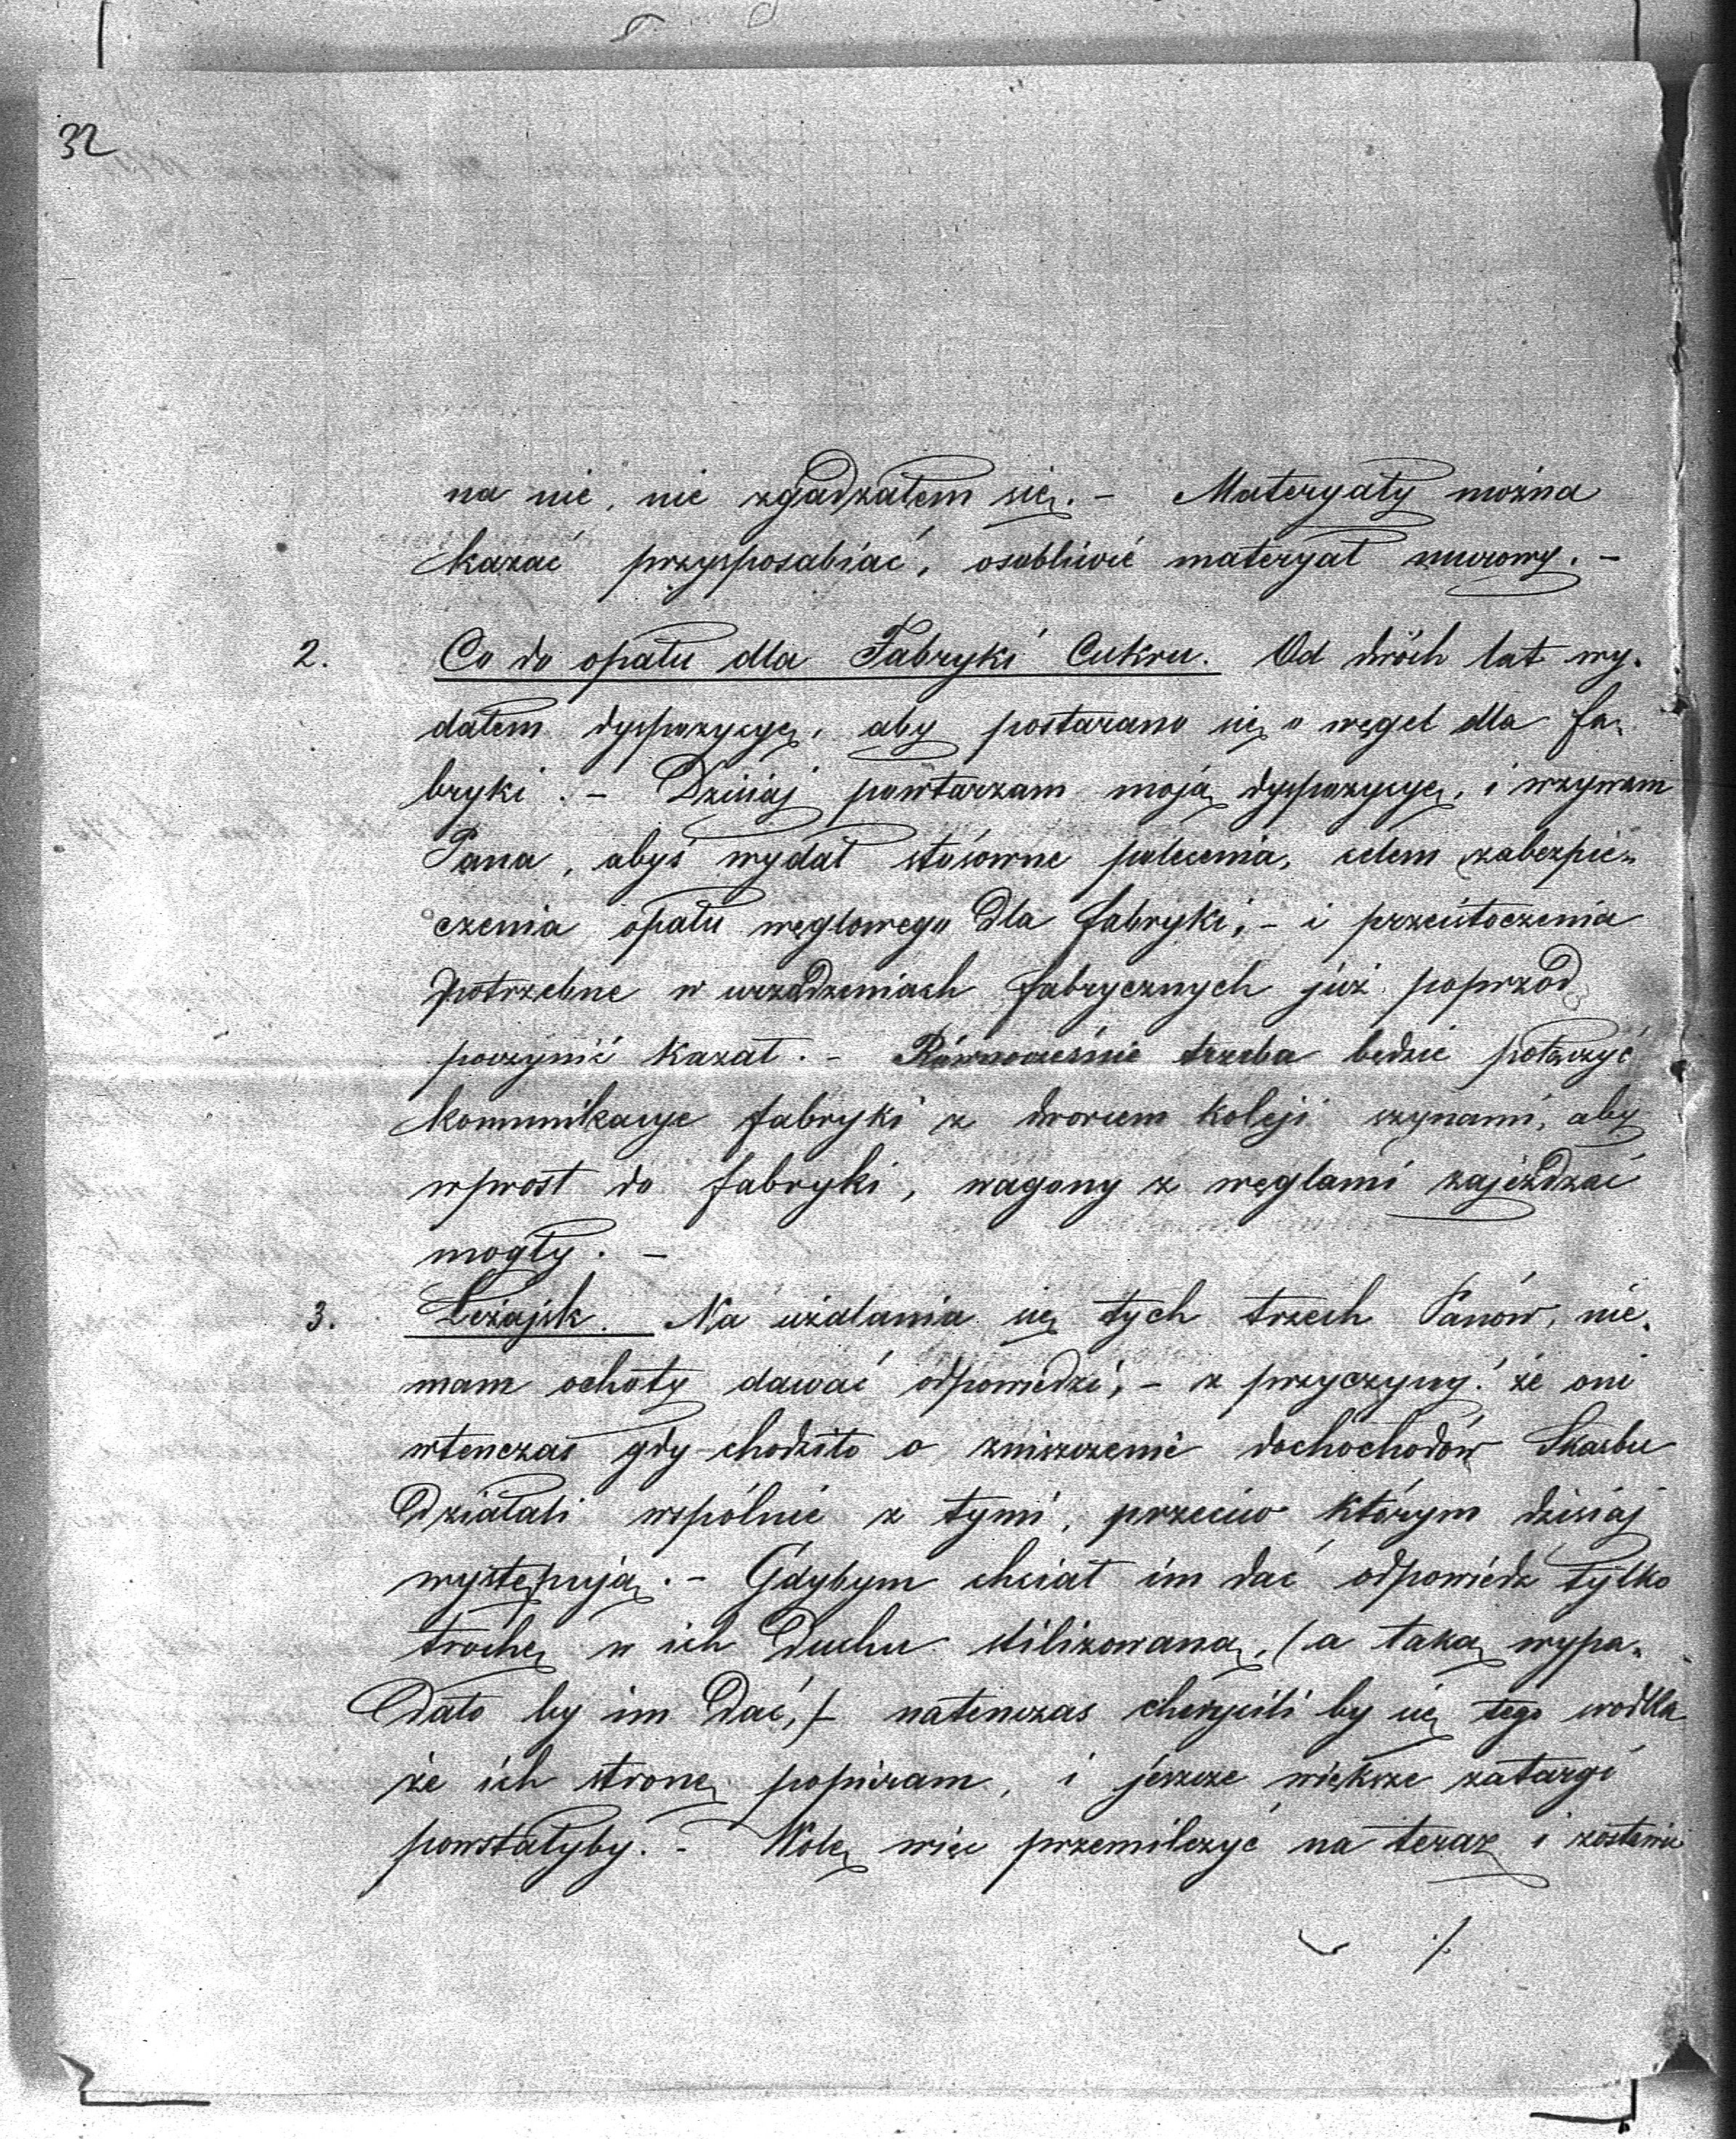 32
na nic, nie zgadzałem się. – Materyały można
kazać przysposabiać, osobliwie materyał murowy. –
2. Co do opału dla Fabryki Cukru. Od dwóch lat wy-
dałem dyspozycyę, aby postarano się o węgiel dla fa-
bryki. – Dzisiaj powtarzam moją dyspozycyę, i wzywam
Pana, abyś wydał stósowne polecenia, celem zabezpie-
czenia opału węglowego dla fabryki, – i przeistoczenia
potrzebne w urządzeniach fabrycznych już poprzód
poczynić kazał. – Równocześnie trzeba będzie połączyć
komunikacye fabryki z dworcem koleji szynami, aby
wprost do fabryki, wagony z węglami zajeżdzać
mogły. –
3. Leżajsk. Na użalania się tych trzech Panów, nie-
mam ochoty dawać odpowiedzi, – z przyczyny: że oni
wtenczas gdy chodziło o zniszczenie dochochodów Skarbu
działali wspólnie z tymi, przeciw którym dzisiaj
występują. – Gdybym chciał im dać odpowiedź tylko
trochę w ich duchu stilizowaną, (a taką wypa-
dało by im dać,) – natenczas chwycili by się tego
że ich stronę popieram, i jeszcze większe zatargi
powstałyby. – Wolę więc przemilczyć na teraz i zostawić
./.